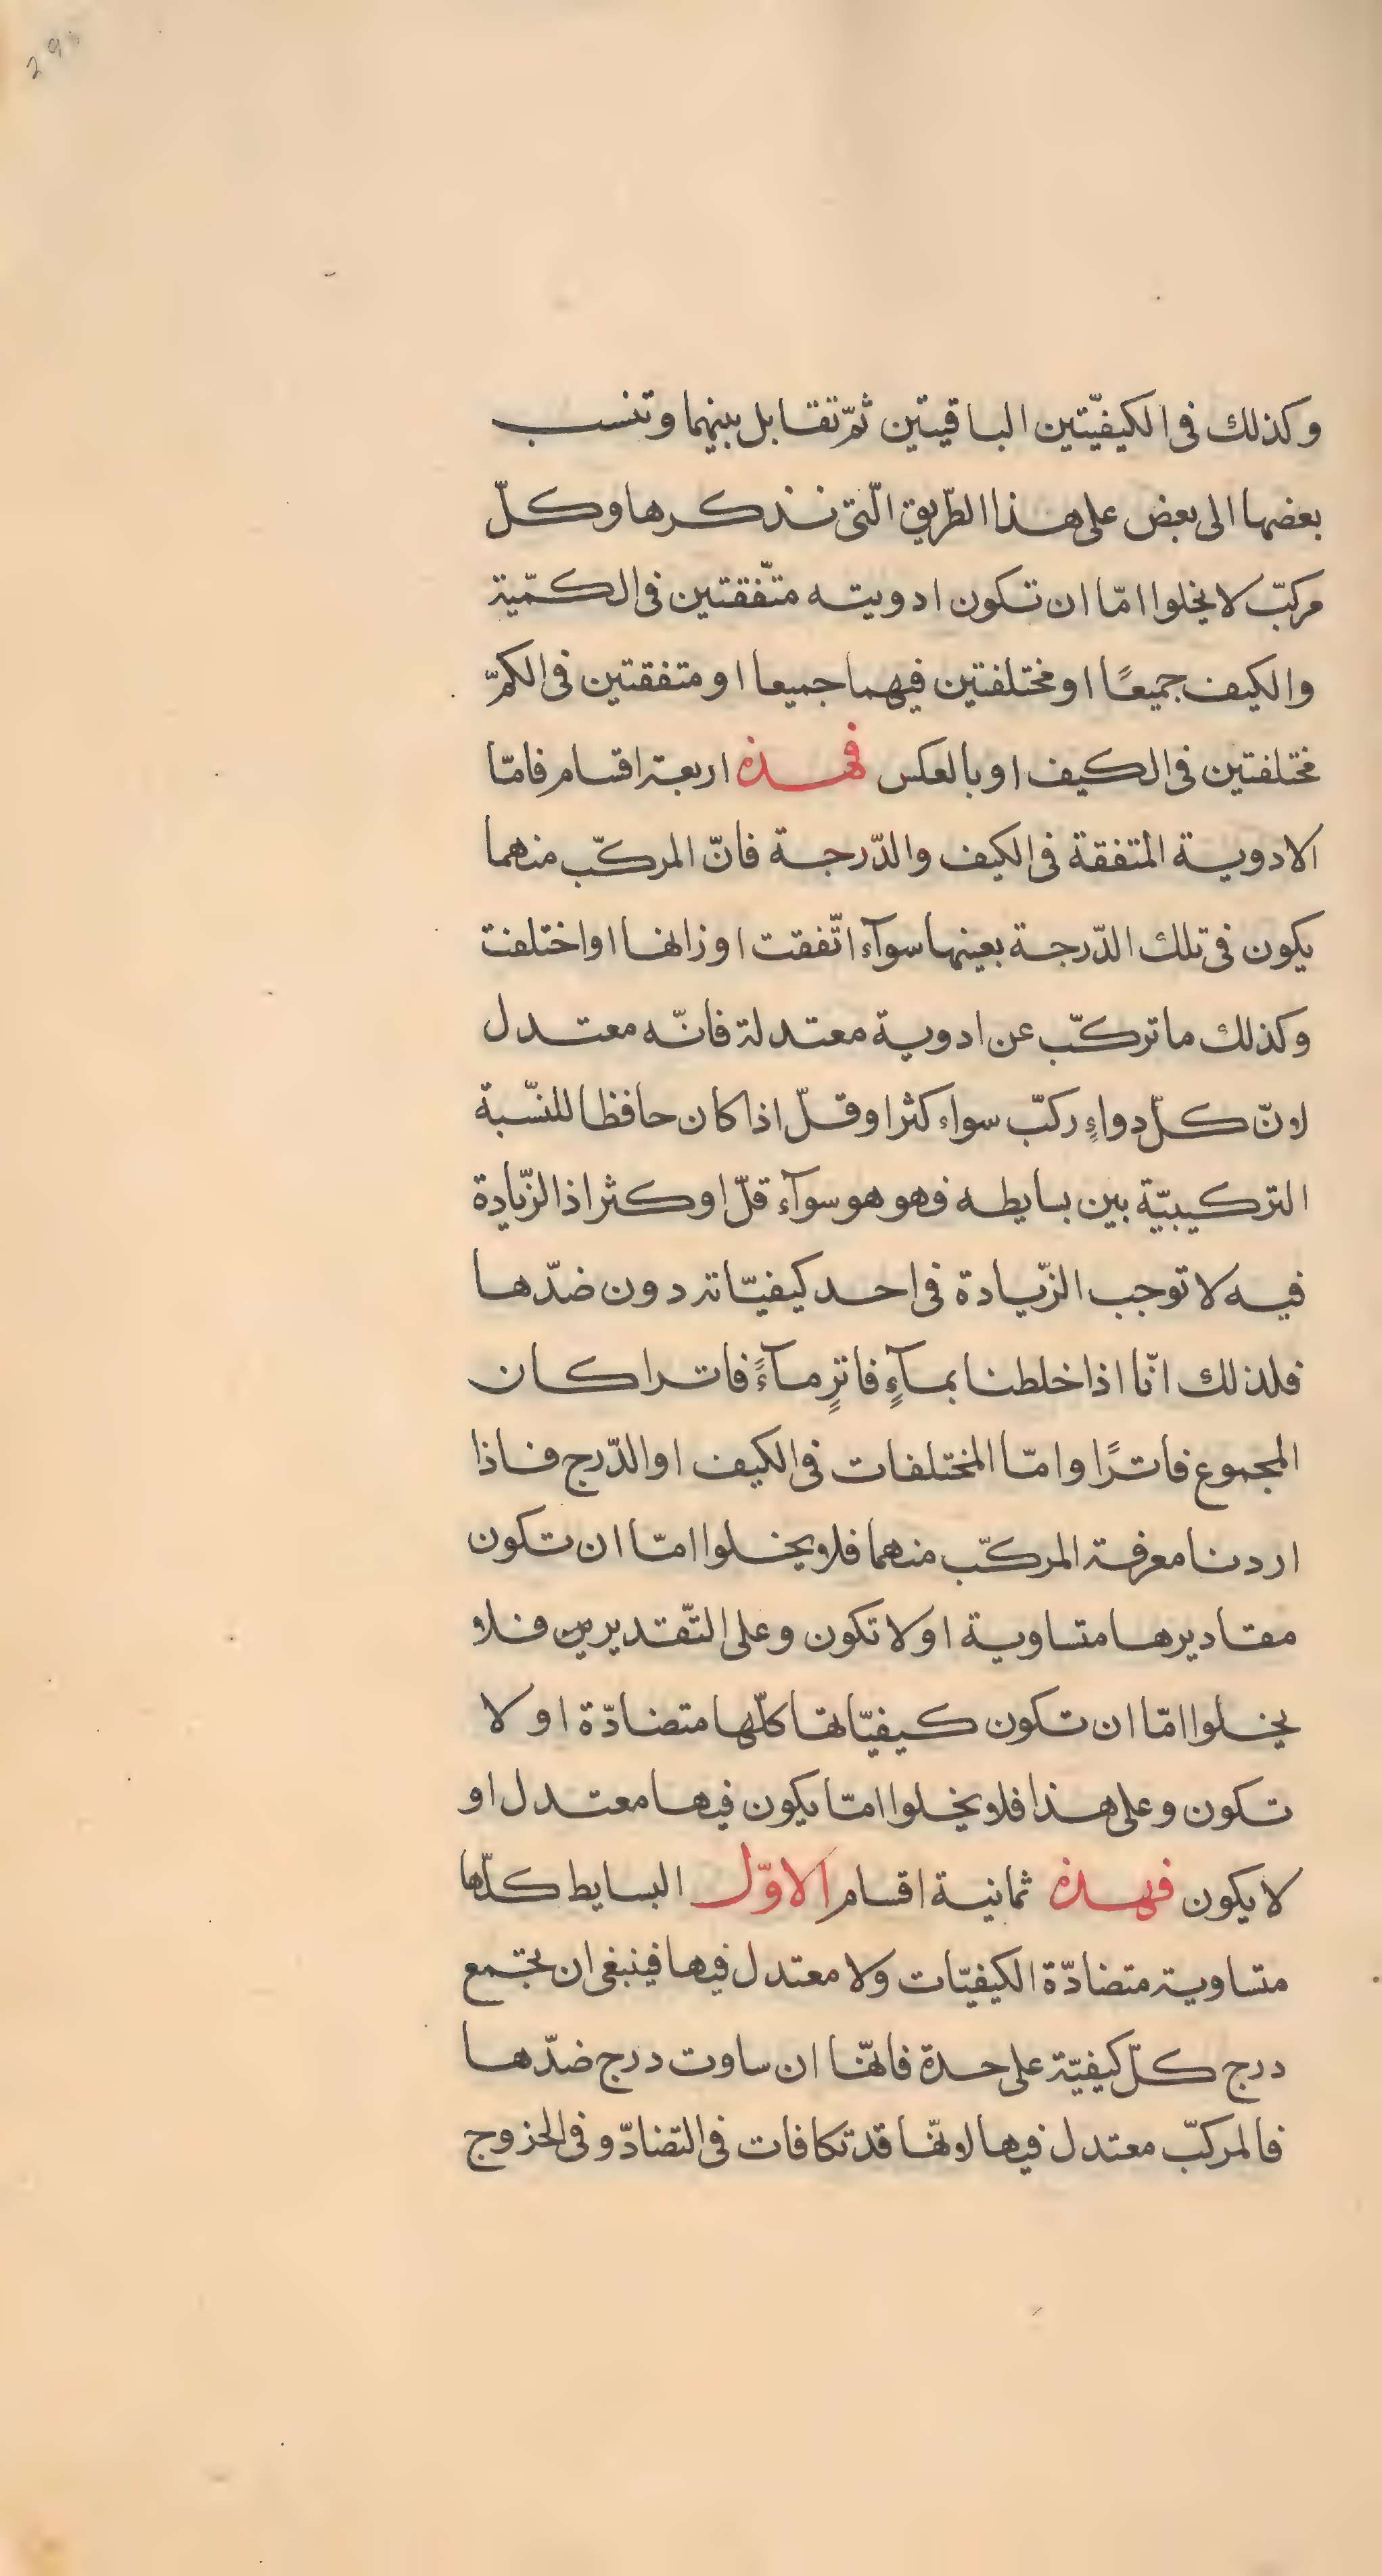 29
وكذلك فى الكيفيّتين الباقيتين ثمّ تقابل بينهما وتنسب
بعضها الى بعض على هذا الطّريق الّتى نذكرها وكلّ
مركبّ لا يخلوا امّا ان تكون ادويته متّفقتين فى الكمّية
والكيف جميعًا او مختلفتين فيهما جميعا او متفقتين فى الكمّ
مختلفتين فى الكيف او بالعكس فهذه اربعة اقسام فامّا
الادوية المتفقة فى الكيف والدّرجة فانّ المركبّ منهما
يكون فى تلك الدّرجة بعينها سوآء اتّفقت اوزانها او اختلفت
وكذلك ما تركبّ عن ادوية معتدلة فانّه معتدل
لانّ كلّ دواءٍ ركبّ سواء كثر او قلّ اذا كان حافظا للنسّبة
التركيبيّة بين بسايطه فهو هو سوآء قلّ او كثر اذ الزّيادة
فيه لا توجب الزّيادة فى احد كيفيّاته دون ضدّها
فلذلك انّا اذا خلطنا بمآءٍ فاترٍ مآءً فاترا كان
المجموع فاترًا وامّا المختلفات فى الكيف او الدّرج فاذا
اردنا معرفة المركبّ منهما فلا يخلوا امّا ان تكون
مقاديرها متساوية او لا تكون وعلى التّقديرين فلا
يخلوا امّا ان تكون كيفيّاتها كلّها متضادّة او لا
تكون وعلى هذا فلا يخلوا امّا يكون فيها معتدل او
لا يكون فهذه ثمانية اقسام الاوّل البسايط كلّها
متساوية متضادّة الكيفيّات ولا معتدل فيها فينبغى ان تجتمع
درج كلّ كيفيّة على حدة فانهّا ان ساوت درج ضدّها
فالمركبّ معتدل فيها لانهّا قد تكافات فى التضادّ وفى الخروج